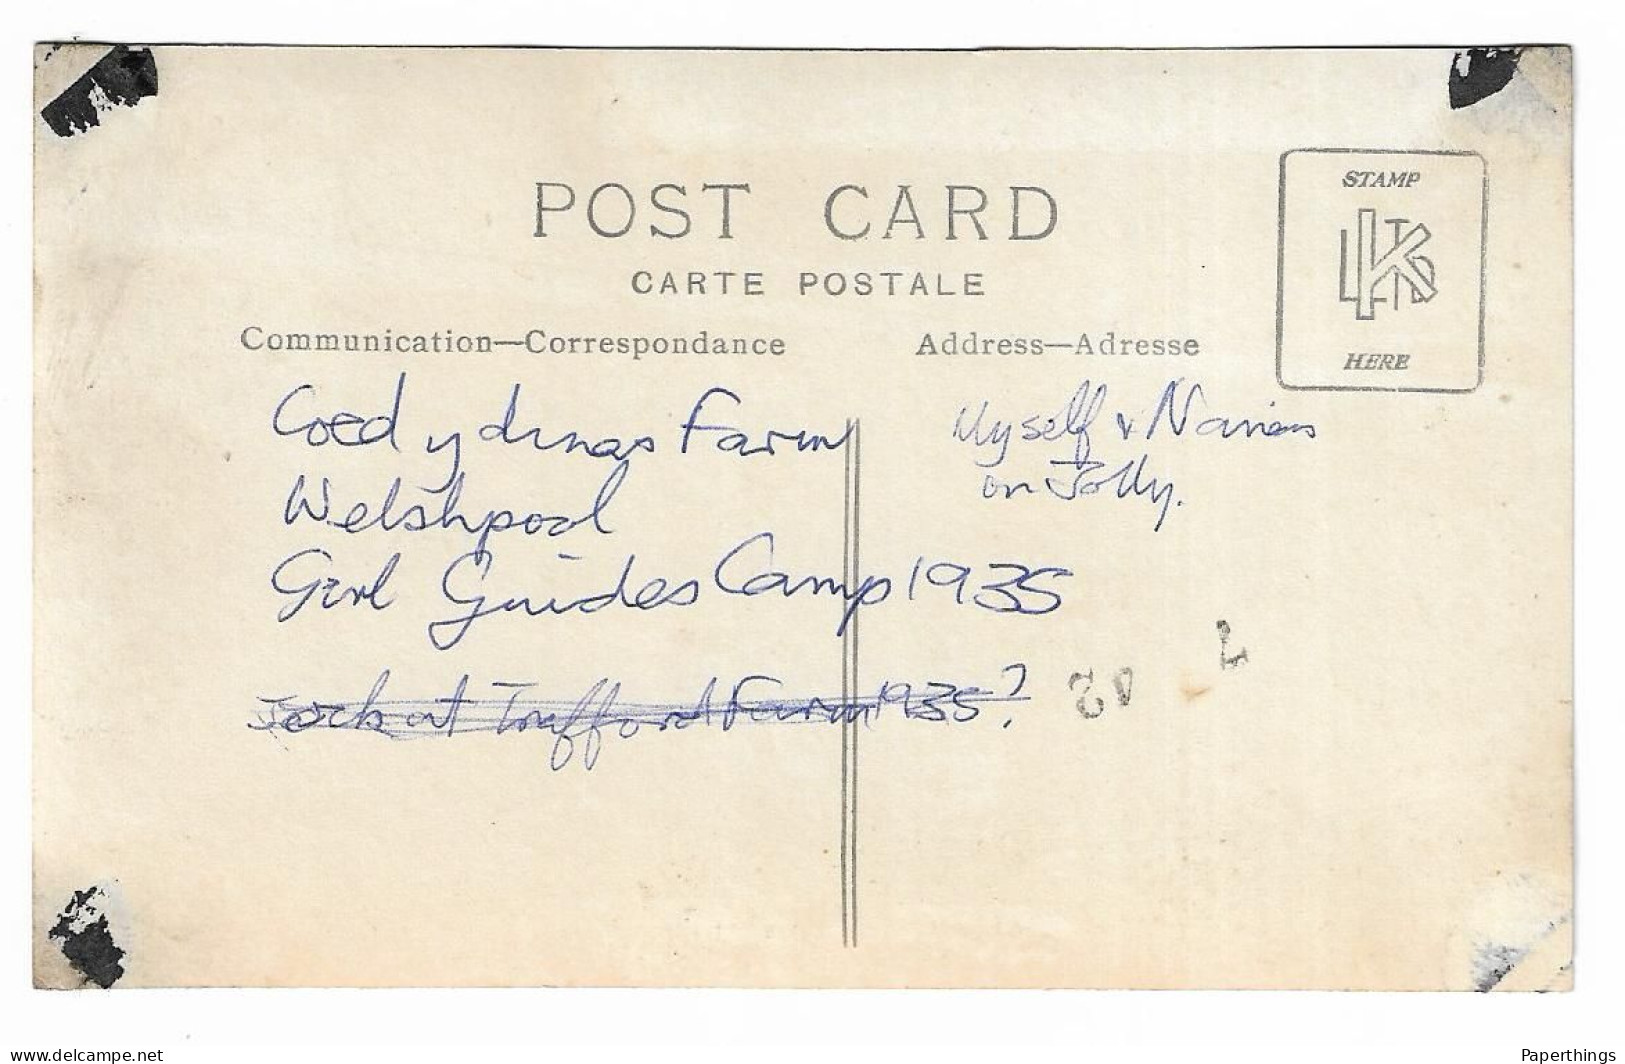 POST CARD
CARTE POSTALE
STAMP
K LTD
HERE
Communication—Correspondance
Address—Adresse
Coed y dinas Farm
Welshpool
Girl Guides Camp 1935
Jack at Trafford Farm 1935?
Myself &
on Jolly.
Paperthings